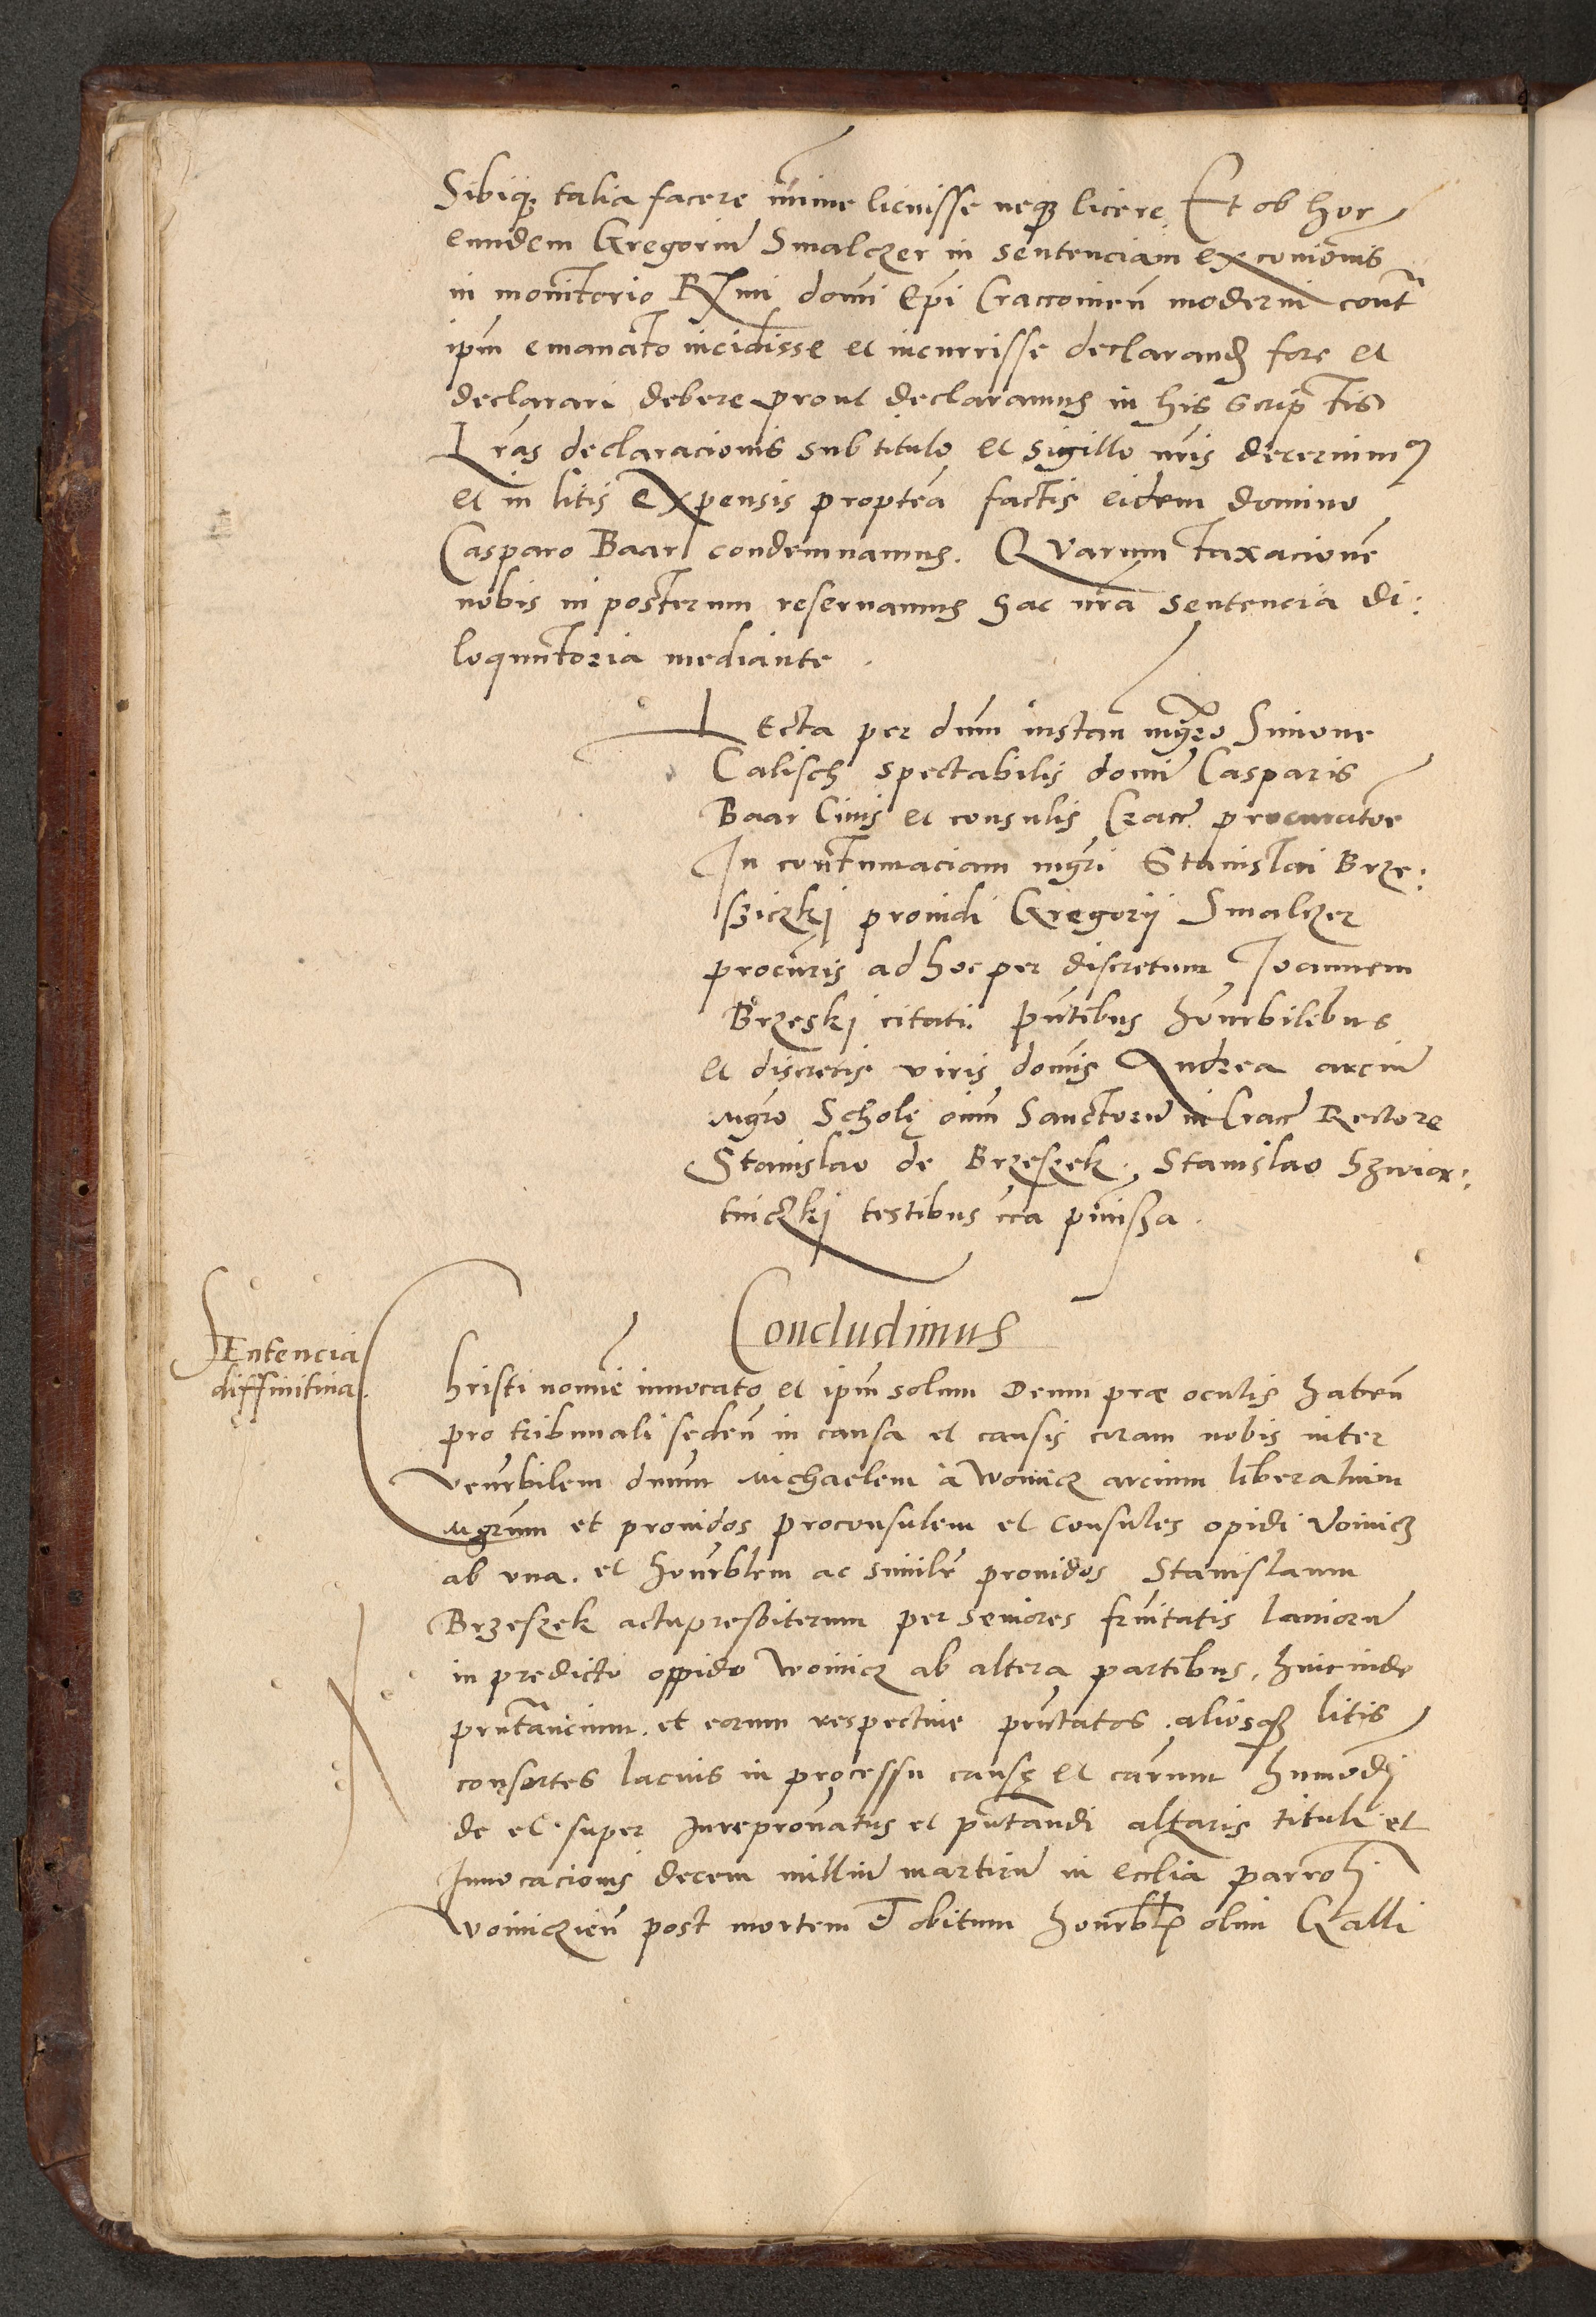 Sibiq₃ talia facere minime licuisse neq₃ licere Et ob hoc
eundem Gregoriu̅ Smalczer in sentenciam excom̄onis
in monitorio R̄mi domi Ep̄i Craccouien̄ moderni contᵃ
ip̄m emanato incidisse et incurrisse declarand̄ fore et
declarari debere prout declaramus in his scriptis
Lr̄as declaracionis sub titulo et sigillo nr̄is decernimꝰ
et in litis expensis propt̄ea factis eidem domino
Casparo Baar condemnamus. Quarum taxacione̅
nobis in posterum reseruamus hac nr̄a sentencia di:
loquutoria mediante.
Lecta per dn̄um instan̄ mgr̄o Simone
Calisch spectabilis domi̅ Casparis
Baar Ciuis et consulis Crac̄ procuratore
In contumaciam mgr̄i Stanislai Brze:
sziczkj prouidi Gregorij Smalczer
procur̄is ad hoc per discretum Joannem
Brzeskj citati. pn̄tibus hon̄orbilibus
et discretis viris domi̅s Andrea arciu̅
mgr̄o Scholę om̄m Sanctoru̅ in Crac̄ Rectore
Stanislao de Brzeszek. Stanislao
tniczkj testibus cc̄a p̄miss̄a.
Concludimus
Sentencia
diffinitiua.
Christi nomi̅e inuocato et ip̄m solum Deum prae oculis haben̄
pro tribunali seden̄ in causa et causis coram nobis inter
ven̄rbilem dn̄um Michaelem à Woinicz arcium liberalium
mgr̄um et prouidos proconsulem et Consules opidi Voinicz
ab vna. et honr̄blem ac simil̄r prouidos Stanislaum
Brzeszek actu presbiterum per seniores fr̄nitatis lanioru̅
in predicto oppido Woinicz ab altera partibus, hincinde
prn̄tancium. et eorum respectiue prn̄tatos. aliosq₃ litis
consortes lacius in processu causę et car̄um hm̄odj
de et super Jurepron̄atus et pn̄tandi altaris tituli et
Inuocacionis decem milliu̅ martiru̅ in eccl̄ia parroh̄
Woiniczien̄ post mortem et obitum honrbl̄ olim Galli